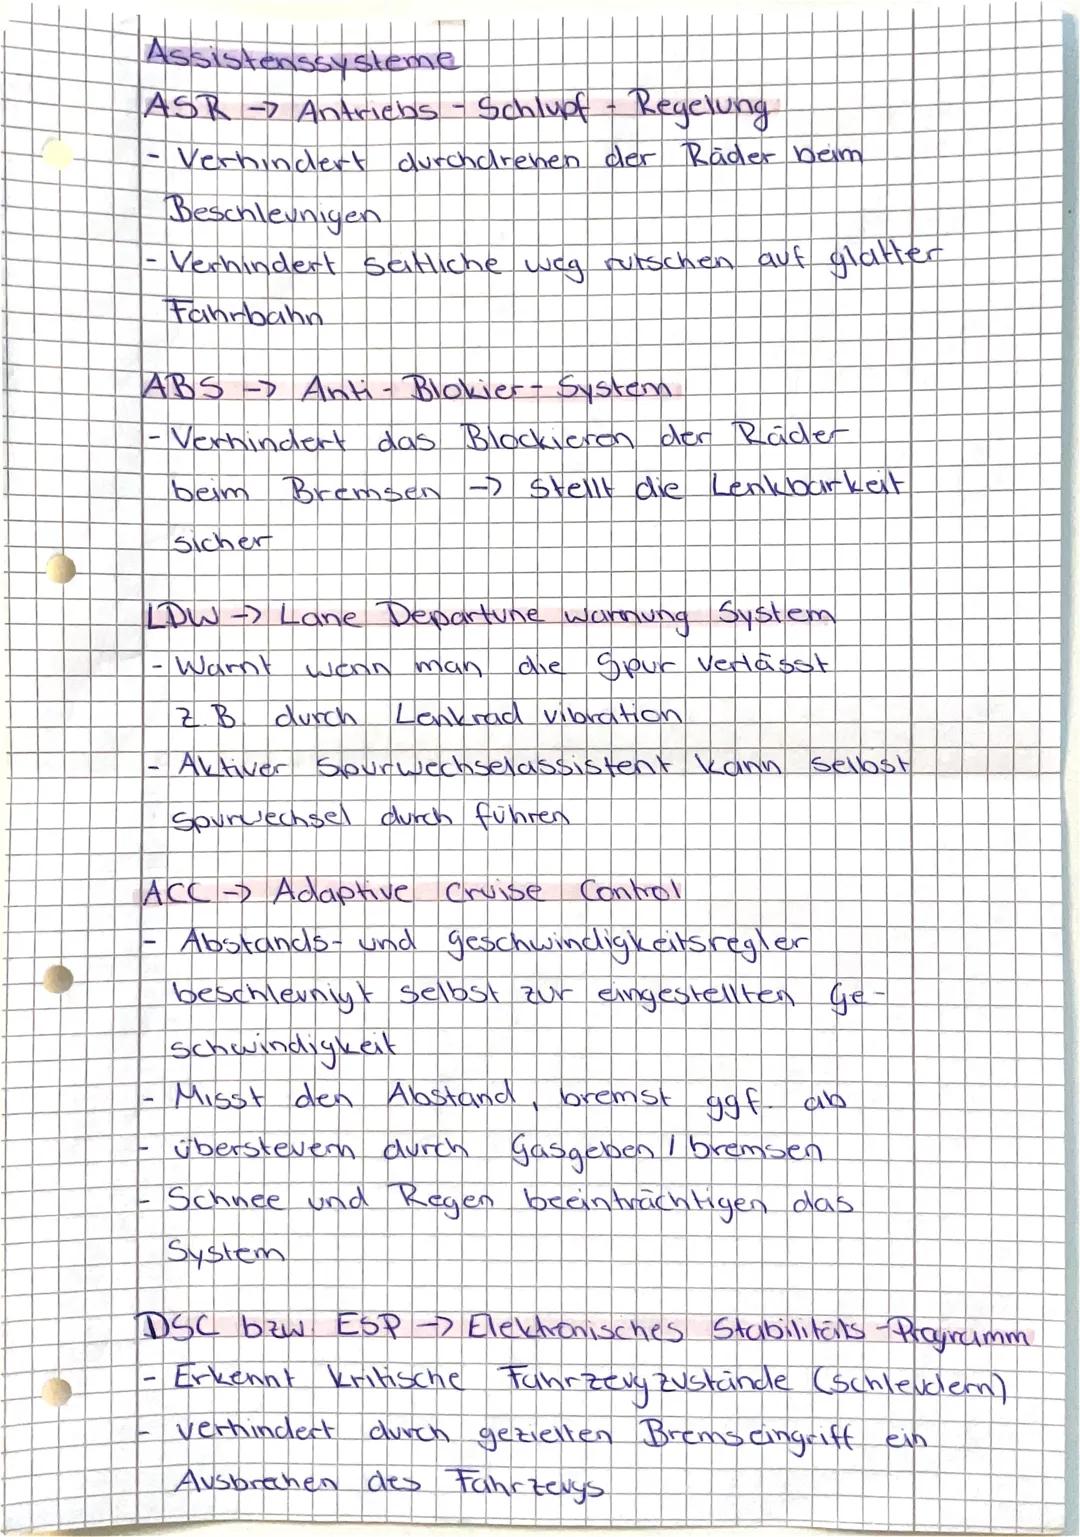 Assistenssysteme
ASR -> Antriebs - Schlupf - Regelung
- Verhindert durchdrehen der Räder beim
Beschleunigen
- Verhindert seitliche weg rutschen auf glatter
Fahrbahn
ABS -> Anti - Blokier - System
- Verhindert das Blockieren der Räder
beim Bremsen -> stellt die Lenkbarkeit
sicher
LDW -> Lane Departune warnung System
- Warnt wenn man die Spur verlässt
z.B. durch Lenkrad vibration
- Aktiver Spurwechselassistent kann selbst
Spurwechsel durch führen
ACC -> Adaptive Cruise Control
- Abstands- und geschwindigkeitsregler
beschleunigt selbst zur eingestellten Ge-
schwindigkeit
- Misst den Abstand, bremst ggf. ab
- übersteuern durch Gasgeben / bremsen
- Schnee und Regen beeinträchtigen das
System
DSC bzw. ESP -> Elektronisches Stabilitäts - Programm
- Erkennt kritische Fahrzeugzustände (schleudern)
- verhindert durch gezielten Bremseingriff ein
Ausbrechen des Fahrzeugs